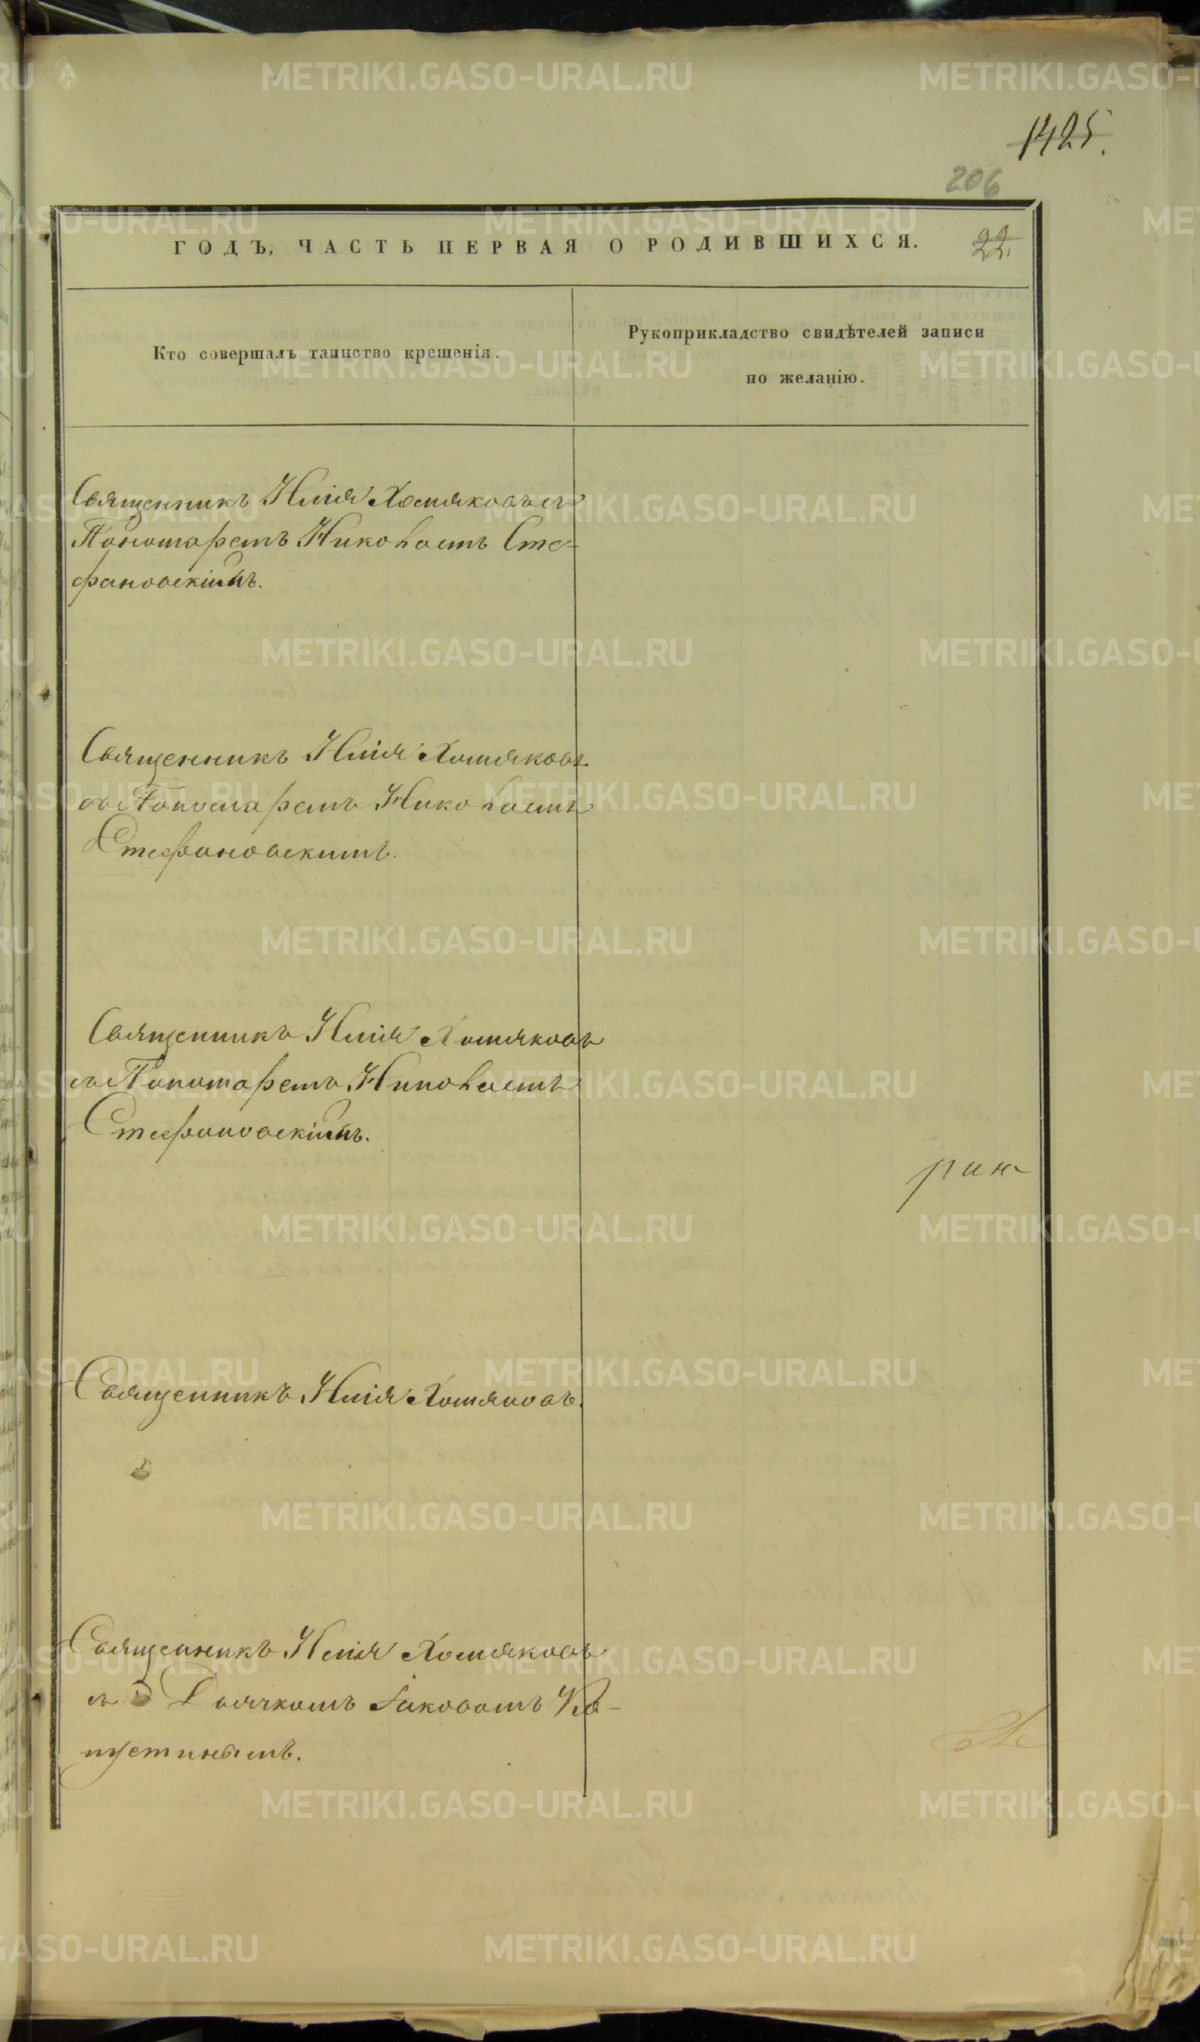 1425.
206
ГОДЪ, ЧАСТЬ ПЕРВАЯ О РОДИВШИХСЯ.
22.
Кто совершалъ таинство крещенія.
Рукоприкладство свидѣтелей записи
по желанію.
Священникъ Илія Хомяковъ съ
Пономаремъ Николаемъ Сте-
фановскимъ.
Священникъ Илія Хомяковъ
съ Пономаремъ Николаемъ
Стефановскимъ.
Священникъ Илія Хомяковъ
съ Пономаремъ Николаемъ
Стефановскимъ.
рин
Священникъ Илія Хомяковъ.
Священникъ Илія Хомяковъ
съ Дьячкомъ Іаковомъ Ка-
пустинымъ.
METRIKI.GASO-URAL.RU